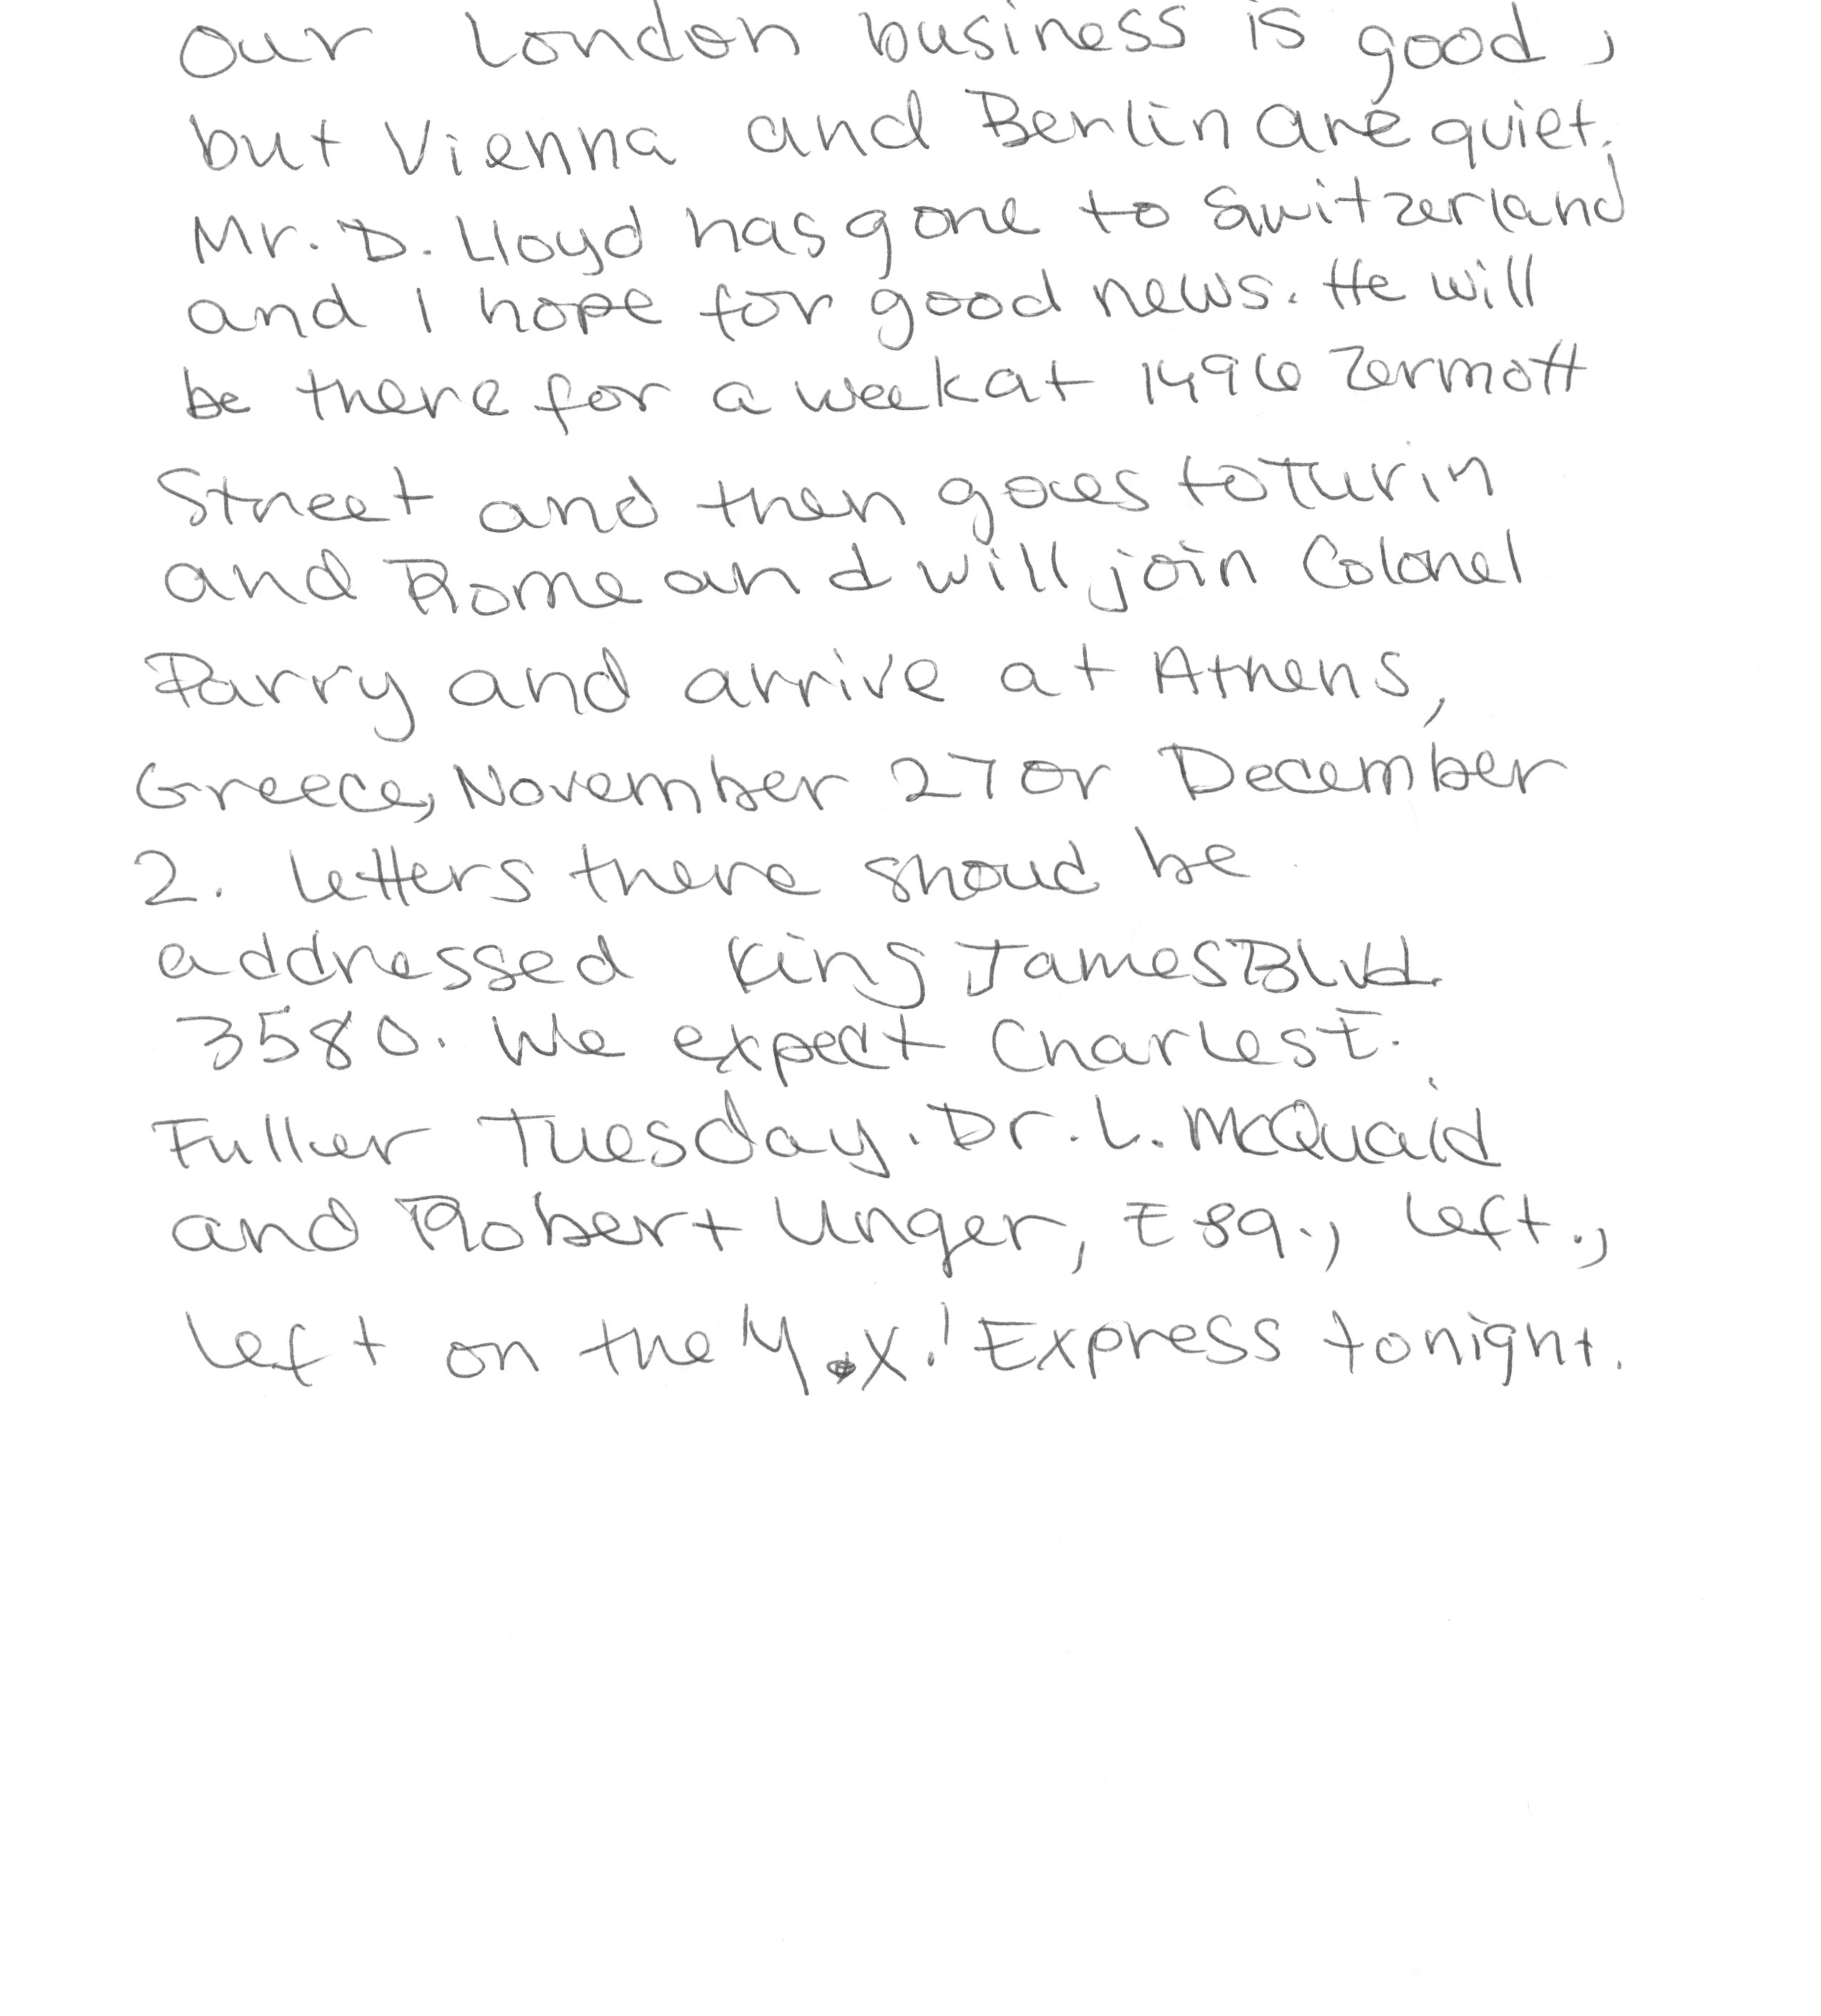 Our London business is good,
but Vienna and Berlin are quiet.
Mr. D. Lloyd has gone to Switzerland
and I hope for good news. He will
be there for a week at 1496 Zermott
Street and then goes to Turin
and Rome and will join Colonel
Parry and arrive at Athens,
Greece, November 27 or December
2. Letters there shoud be
addressed King James Blvd.
3580. We expect Charles E.
Fuller Tuesday. Dr. L. McQuaid
and Robert Unger, Esq., left.,
left on the 'Y.X.' Express tonight.